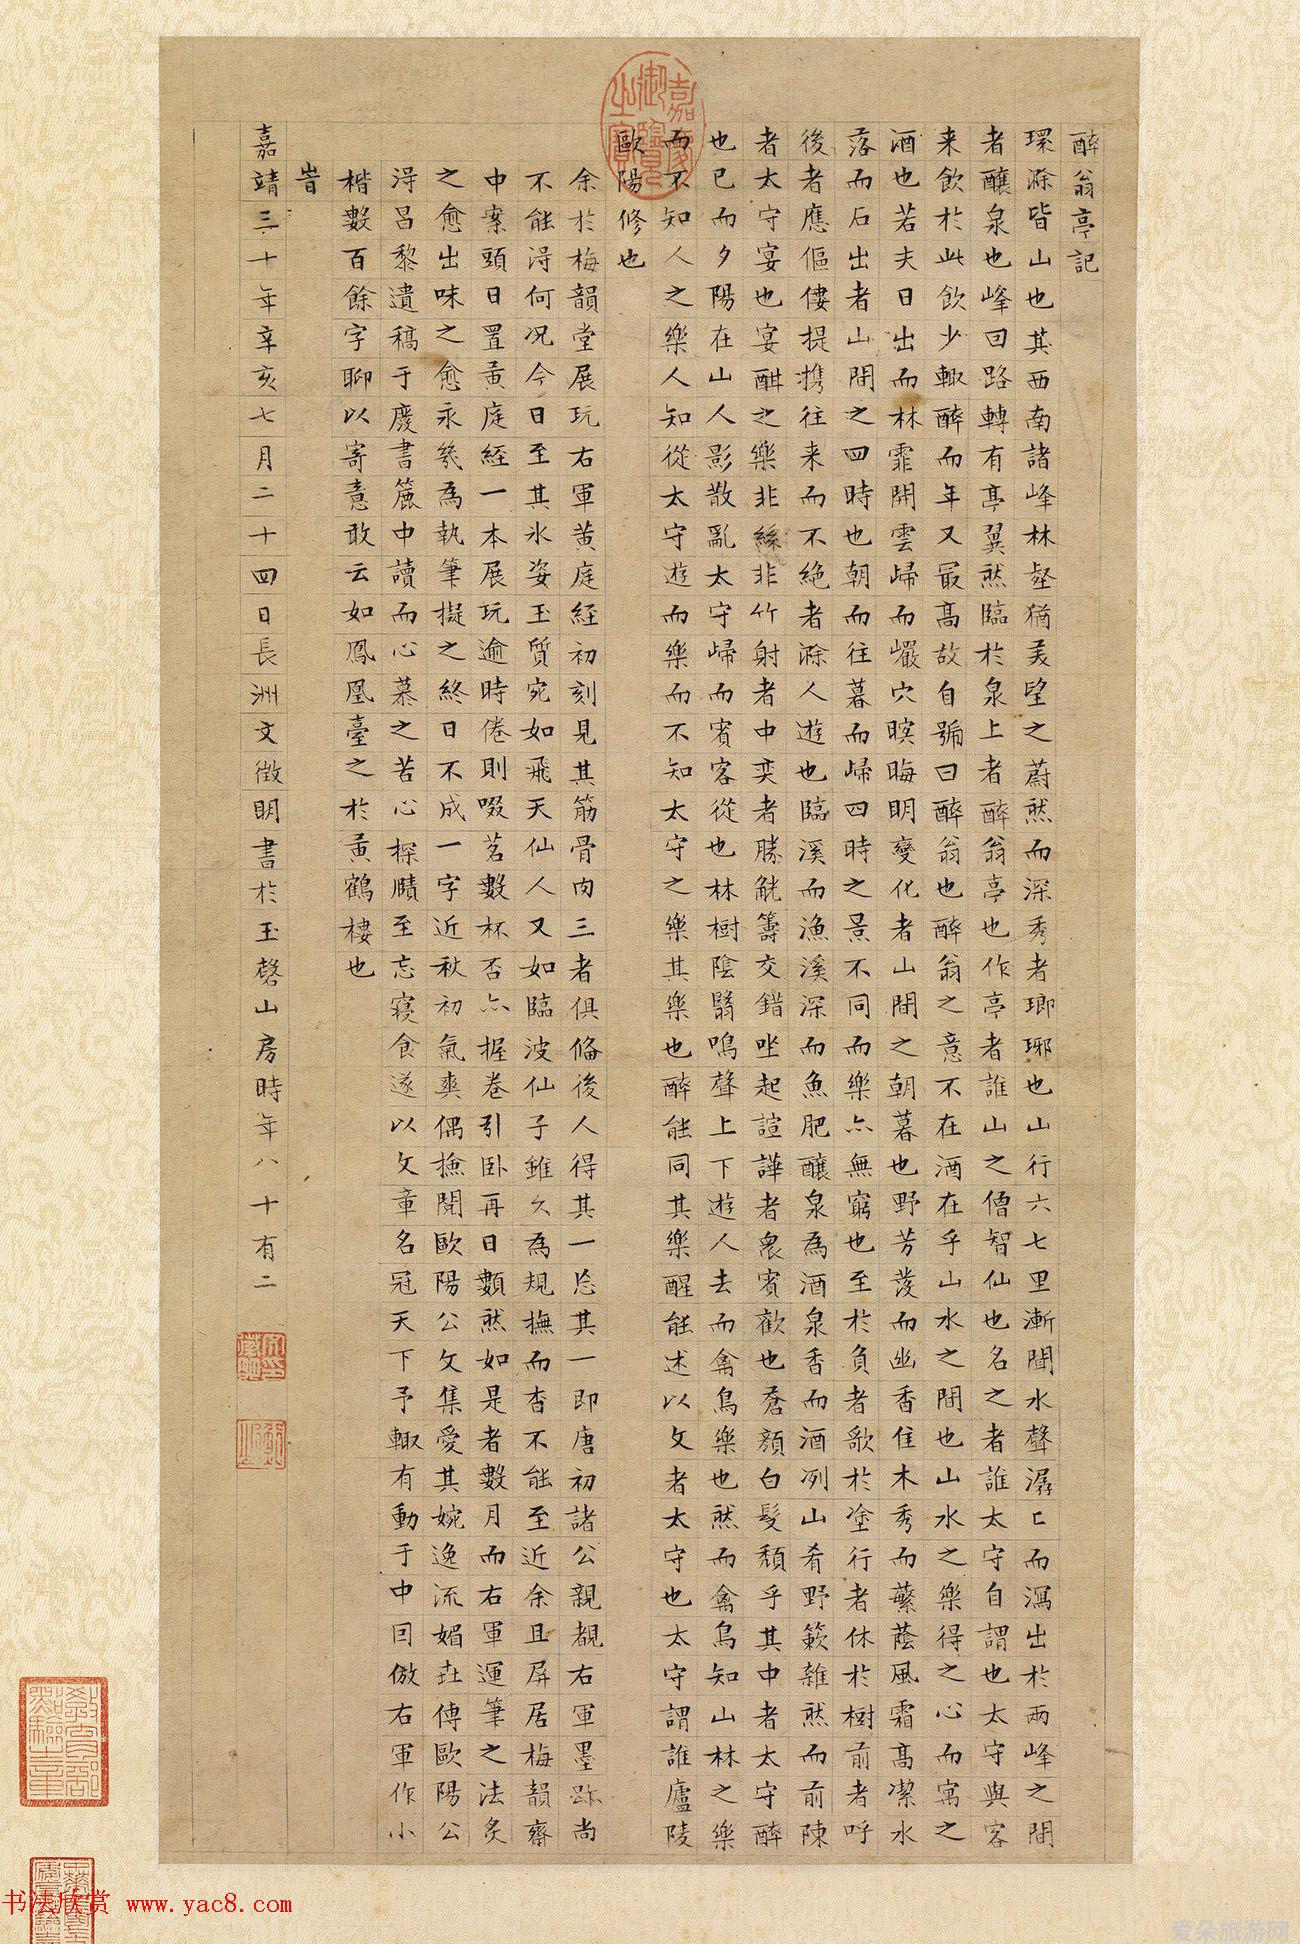 醉翁亭記
環滁皆山也其西南諸峰林壑猶美望之蔚然而深秀者瑯琊也山行六七里漸聞水聲潺〻而瀉出於兩峰之間
者釀泉也峰回路轉有亭翼然臨於泉上者醉翁亭也作亭者誰山之僧智仙也名之者誰太守自謂也太守與客
来飲於此飲少輙醉而年又最髙故自號曰醉翁也醉翁之意不在酒在乎山水之間也山水之樂得之心而寓之
酒也若夫日出而林霏開雲歸而巖穴暝晦明變化者山間之朝暮也野芳發而幽香佳木秀而蘩蔭風霜髙潔水
落而石出者山間之四時也朝而往暮而歸四時之景不同而樂亦無窮也至於負者歌於塗行者休於樹前者呼
後者應傴僂提携往来而不絶者滁人遊也臨溪而漁溪深而魚肥釀泉為酒泉香而酒冽山肴野蔌雜然而前陳
者太守宴也宴酣之樂非絲非竹射者中奕者勝觥籌交錯坐起諠譁者衆賓歡也蒼顔白髮頹乎其中者太守醉
也已而夕陽在山人影散亂太守歸而賓客從也林樹陰翳鳴聲上下遊人去而禽鳥樂也然而禽鳥知山林之樂
而不知人之樂人知從太守遊而樂而不知太守之樂其樂也醉能同其樂醒能述以文者太守也太守謂誰廬陵
歐陽修也
余於梅韻堂展玩右軍黄庭经初刻見其筋骨肉三者俱備後人得其一忘其一即唐初諸公親覩右軍墨跡尚
不能淂何况今日至其氷姿玉質宛如飛天仙人又如臨波仙子雖久為規撫而杳不能至近余且屏居梅韻齋
中案頭日置黄庭經一本展玩逾時倦則啜茗數杯否亦握卷引卧再日數然如是者數月而右軍運筆之法炙
之愈出味之愈永幾為執筆擬之終日不成一字近秋初氣爽偶撿閱歐陽公文集愛其婉逸流媚世傳歐陽公
淂昌黎遺稿于廢書簏中讀而心慕之苦心探賾至忘寢食遂以文章名冠天下予輙有動于中因倣右軍作小
楷數百餘字聊以寄意敢云如鳳凰臺之於黄鶴樓也
旹
嘉靖三十年辛亥七月二十四日長洲文徵明書於玉磬山房時年八十有二
嘉慶御覽之寶
书法欣赏 www.yac8.com
爱朵旅游网